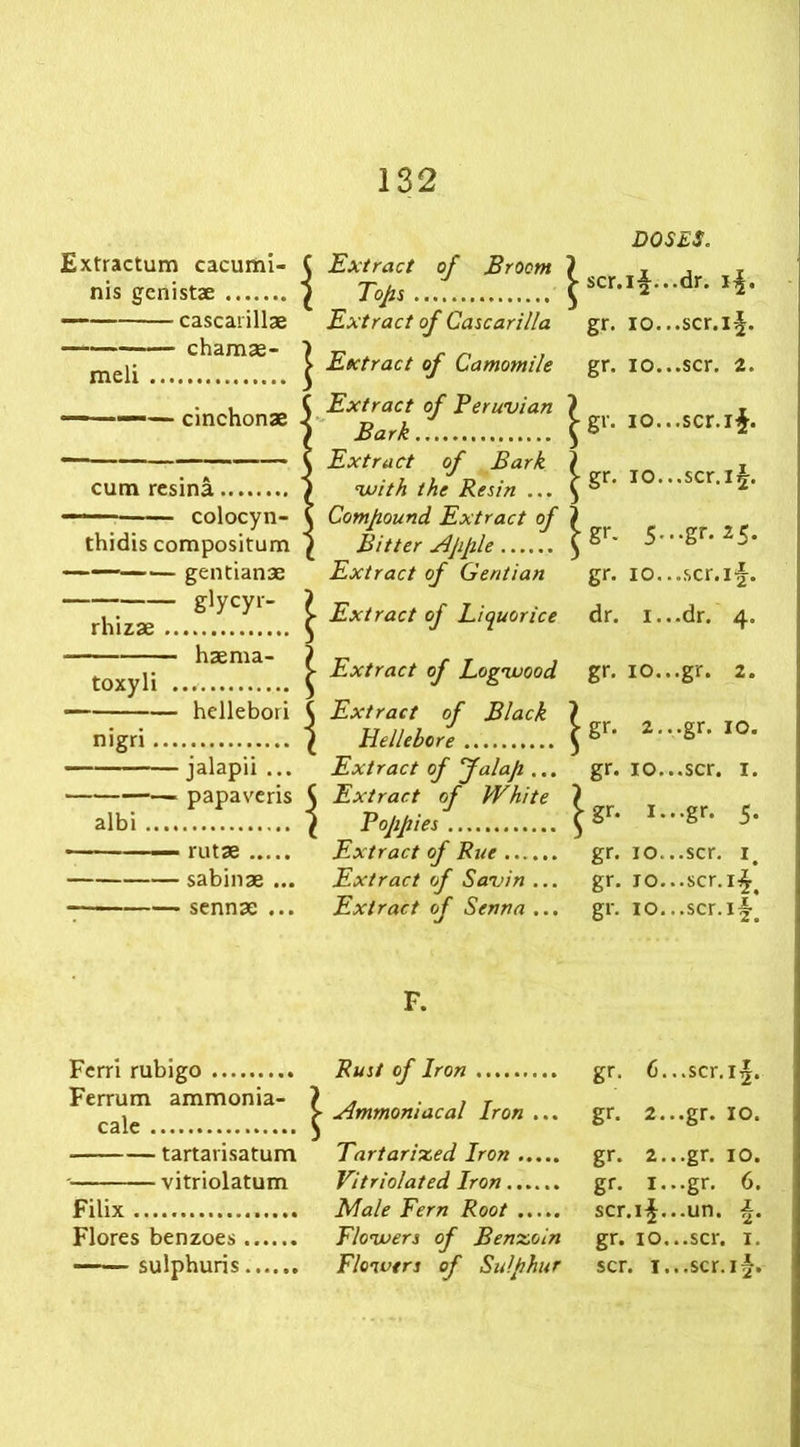 132
DOSES.
Extractum cacumi- { Extract of Broom } scr.1½...dr. 1½.
nis genistæ ....... { Tops ............... }
———— cascarillæ Extract of Cascarilla gr. 10...scr.1½.
———— chamæ- } Extract of Camomile gr. 10...scr. 2.
meli ............... }
———— cinchonæ { Extract of Peruvian } gr. 10...scr.1½.
{ Bark ............... }
———————— { Extract of Bark } gr. 10...scr.1½.
cum resinâ ........ { with the Resin ... }
———— colocyn- { Compound Extract of } gr. 5...gr. 25.
thidis compositum { Bitter Apple ...... }
———— gentianæ Extract of Gentian gr. 10...scr.1½.
———— glycyr- } Extract of Liquorice dr. 1...dr. 4.
rhizæ .............. }
———— hæma- } Extract of Logwood gr. 10...gr. 2.
toxyli .............. }
———— hellebori { Extract of Black } gr. 2...gr. 10.
nigri ............... { Hellebore ........... }
———— jalapii ... Extract of Jalap ... gr. 10...scr. 1.
———— papaveris { Extract of White } gr. 1...gr. 5.
albi ................. { Poppies ............. }
———— rutæ ..... Extract of Rue ...... gr. 10...scr. 1.
———— sabinæ ... Extract of Savin ... gr. 10...scr.1½.
———— sennæ ... Extract of Senna ... gr. 10...scr.1½.
F.
Ferri rubigo .......... Rust of Iron .......... gr. 6...scr.1½.
Ferrum ammonia- } Ammoniacal Iron ... gr. 2...gr. 10.
cale ................. }
———— tartarisatum Tartarized Iron ..... gr. 2...gr. 10.
———— vitriolatum Vitriolated Iron ...... gr. 1...gr. 6.
Filix ................... Male Fern Root ..... scr.1½...un. ½.
Flores benzoes ...... Flowers of Benzoin gr. 10...scr. 1.
—— sulphuris ...... Flowers of Sulphur scr. 1...scr.1½.